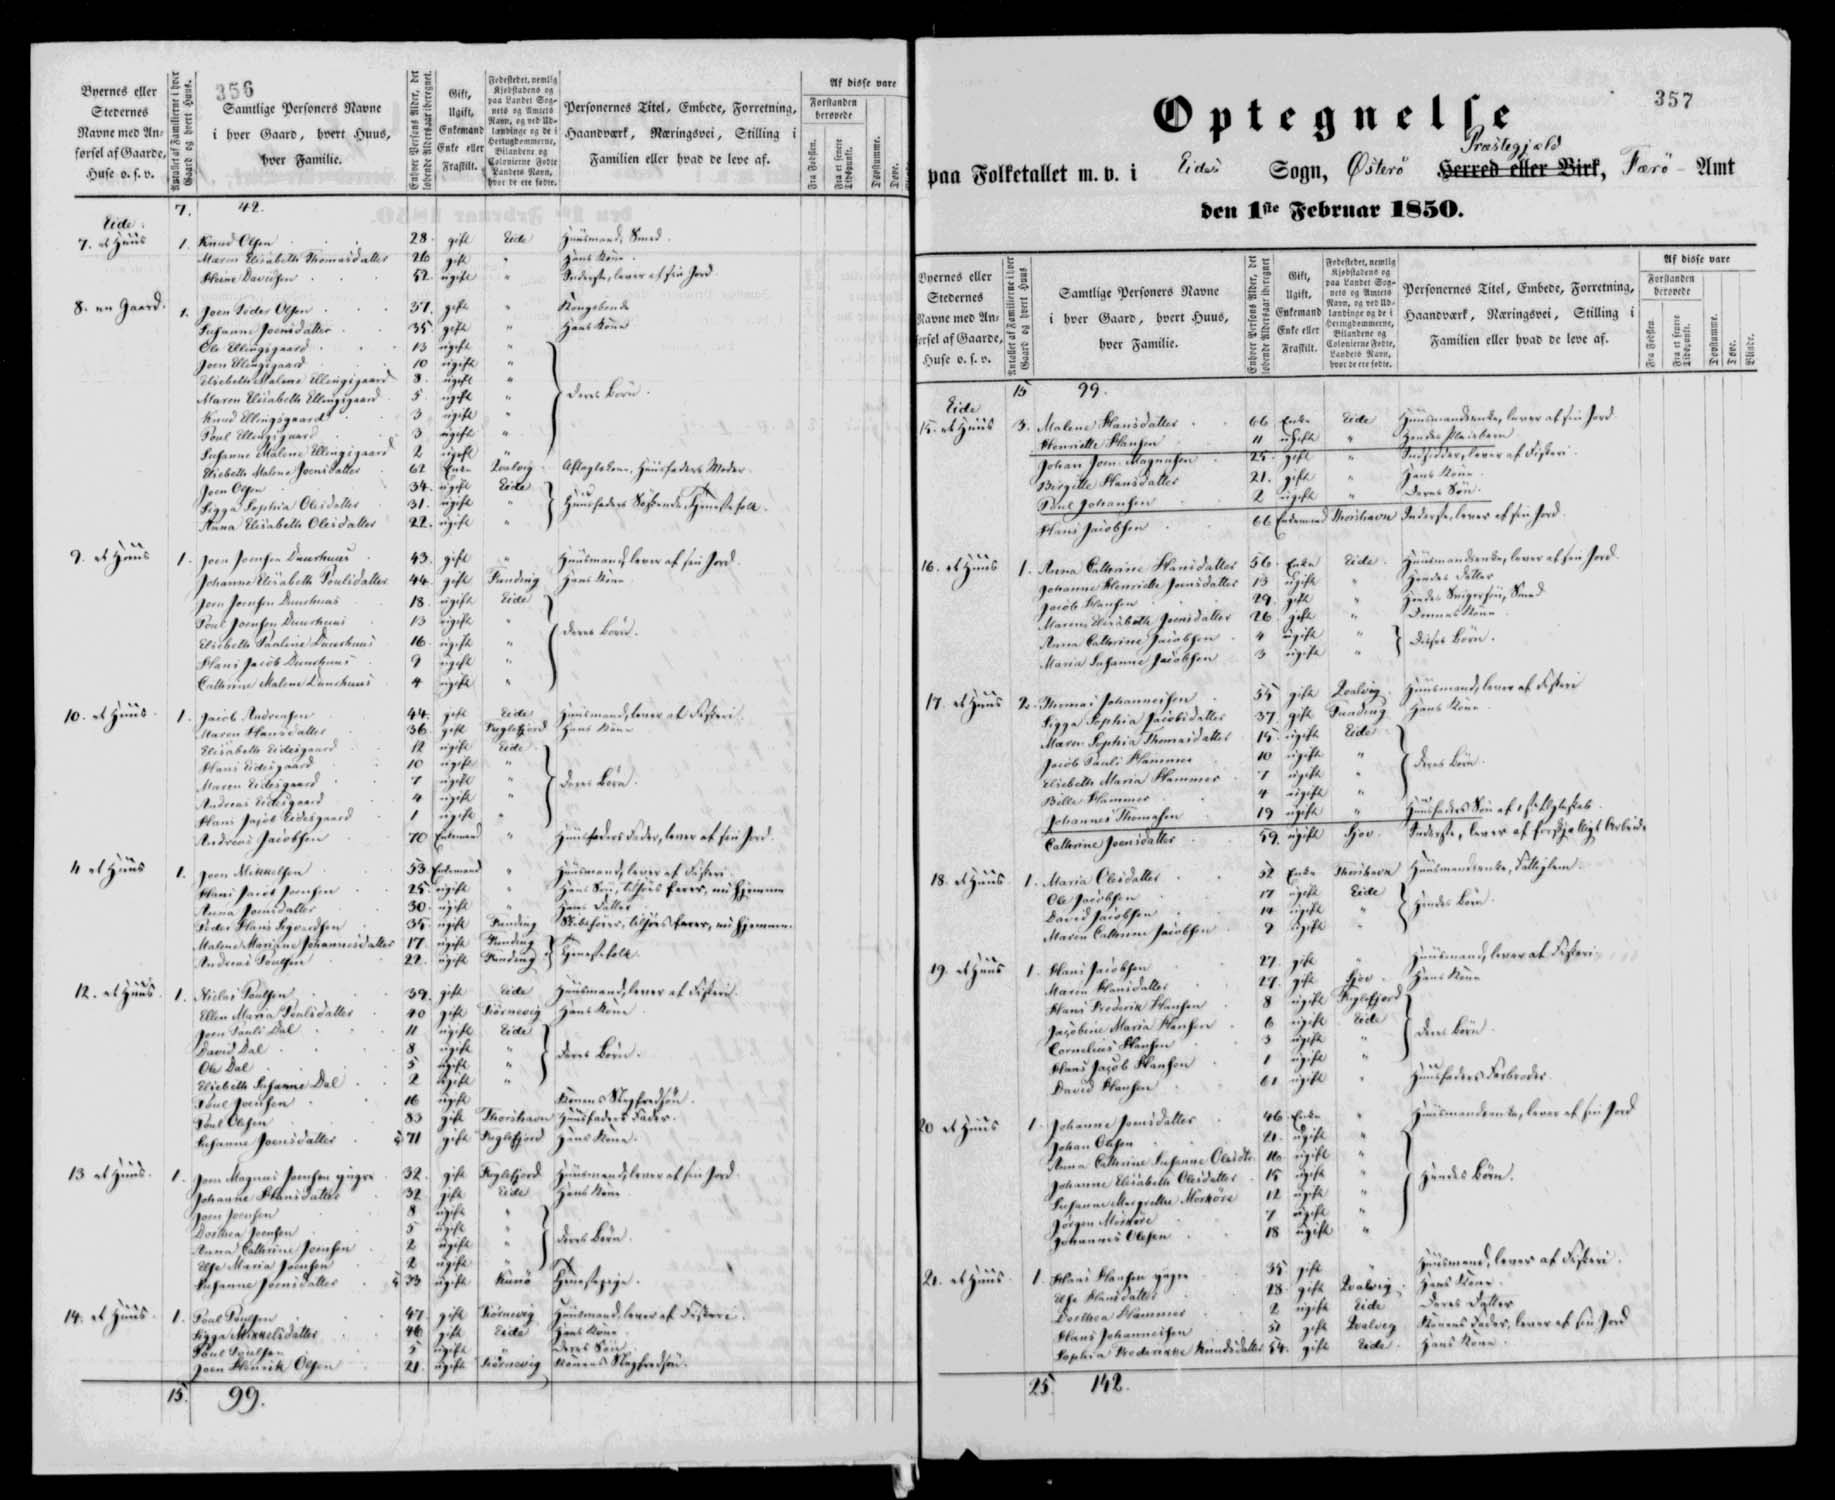 356
Byernes eller Stedernes Navne med Anførsel af Gaarde, Huse o. s. v.
Antallet af Familierne i hver Gaard og hvert Huus.
Samtlige Personers Navne i hver Gaard, hvert Huus, hver Familie.
Enhver Persons Alder, det løbende Aldersaar iberegnet.
Gift, Ugift, Enkemand Enke eller Fraskilt.
Fødestedet, nemlig Kjøbstadens og paa Landet Sognets og Amtets Navn, og ved Udlændinge og de i Hertugdømmerne, Bilandene og Colonierne Fødte Landets Navn, hvor de ere fødte.
Personernes Titel, Embede, Forretning, Haandværk, Næringsvei, Stilling i Familien eller hvad de leve af.
Af disse vare
Forstanden berøvede
Fra Fødslen.
Fra et senere Tidspunkt.
Døvstumme.
Døve.
7. 42.
Eide.
7. et Huus 1. Knud Olsen 28. gift Eide Huusmand, Smed.
Maren Elisabeth Thomasdatter 26 gift " Hans Kone.
Heine Davidsen 52. ugift " Inderste, lever af sin Jord.
8. en Gaard. 1. Joen Peder Olsen 37. gift " Kongsbonde
Susanne Joensdatter 35 gift " Hans Kone
Ole Ellingsgaard 13 ugift "
Joen Ellingsgaard 10 ugift "
Elisabeth Malene Ellingsgaard 8. ugift "
Maren Elisabeth Ellingsgaard 5 ugift " Deres Børn.
Knud Ellingsgaard 3 ugift "
Poul Ellingsgaard 3 ugift "
Susanne Malene Ellingsgaard 2 ugift "
Elisabeth Malene Joensdatter 62 Enke Qvalvig Aftægtskone, Huusfaders Moder.
Joen Olsen 34. ugift Eide
Sigga Sophia Olesdatter 31. ugift " Huusfaders Sødskende, Tjenestefolk.
Anna Elisabeth Olesdatter 22. ugift "
9. et Huus 1. Joen Joensen Duurhuus 43. gift " Huusmand, lever af sin Jord.
Johanne Elisabeth Poulsdatter 44. gift Funding Hans Kone
Joen Joensen Duurhuus 18. ugift Eide
Poul Joensen Duurhuus 13 ugift "
Elisabeth Pauline Duurhuus 16. ugift " Deres Børn.
Hans Jacob Duurhuus 9 ugift "
Cathrine Malene Duurhuus 4 ugift "
10. et Huus 1. Jacob Andreasen 44. gift Eide Huusmand, lever af Fiskeri.
Maren Hansdatter 36. gift Fuglefjord Hans Kone
Elisabeth Eidesgaard 12 ugift Eide
Hans Eidesgaard 10 ugift "
Maren Eidesgaard 7 ugift " Deres Børn.
Andreas Eidesgaard 4 ugift "
Hans Jacob Eidesgaard 1 ugift "
Andreas Jacobsen 70 Enkemand " Huusfaders Fader, lever af sin Jord.
11 et Huus 1. Joen Mikkelsen 53. Enkemand " Huusmand, lever af Fiskeri.
Hans Jacob Joensen 25. ugift " Hans Søn, tilsøes farer, nu hjemme
Anna Joensdatter 30. ugift " Hans Datter
Peder Hans 35 ugift Funding Skibsfører, tilsøes farer, nu hjemme.
Malene Marine Johannesdatter 17. ugift Funding Tjenestefolk.
Andreas Poulsen 22. ugift Funding
12. et Huus 1. Niclas Poulsen 39. gift Eide Huusmand, lever af Fiskeri.
Ellen Maria Poulsdatter 40 gift Niørnevig Hans Kone.
Joen Pauli Dal 11 ugift Eide
David Dal 8 ugift "
Ole Dal 5 ugift " Deres Børn.
Elsebeth Susanne Dal 2 ugift "
Poul Joensen 16 ugift Konens Slegfredsøn.
Poul Olsen 83 gift Thorshavn Huusfaders Fader.
Susanne Joensdatter 71 gift Fuglefjord Hans Kone.
13 et Huus 1. Joen Magnus Joensen yngre 32. gift Fuglefjord Huusmand, lever af sin Jord.
Johanne Hansdatter 32 gift Eide Hans Kone.
Joen Joensen 8 ugift "
Dorthea Joensen 5 ugift " Deres Børn.
Anna Cathrine Joensen 2 ugift "
Else Maria Joensen 2 ugift "
Susanne Joensdatter 33 ugift Kunø Tjenestepige.
14. et Huus 1. Poul Poulsen 47. gift Niørnevig Huusmand, lever af Fiskeri.
Sigga Mikkelsdatter 46 gift Eide Hans Kone.
Poul Poulsen 5 ugift " Deres Søn
Joen Henrik Olsen 21. ugift Niørnevig Konens Slegfredsøn.
15. 99.
357
Optegnelse
paa Folketallet m. v. i Eides Sogn, Østerø Præstegjeld Herred eller Birk, Færø Amt
den 1ste Februar 1850.
Byernes eller Stedernes Navne med Anførsel af Gaarde, Huse o. s. v.
Antallet af Familierne i hver Gaard og hvert Huus
Samtlige Personers Navne i hver Gaard, hvert Huus, hver Familie.
Enhver Persons Alder, det løbende Aldersaar iberegnet
Gift, Ugift, Enkemand Enke eller Fraskilt.
Fødestedet, nemlig Kjøbstadens og paa Landet Sognets og Amtets Navn, og ved Udlændinge og de i Hertugdømmerne, Bilandene og Colonierne Fødte, Landets Navn, hvor de ere fødte.
Personernes Titel, Embede, Forretning, Haandværk, Næringsvei, Stilling i Familien eller hvad de leve af.
Af disse vare
Forstanden berøvede
Fra Fødslen.
Fra et senere Tidspunkt.
Døvstumme.
Døve.
Blinde.
15 99.
Eide
15. et Huus 3. Malene Hansdatter 66 Enke Eide Huusmandsenke, lever af sin Jord.
Henriette Hansen 11 ugift " Hendes Pleiebarn
Johan Joen Magnusen 25. gift " Indsidder, lever af Fiskeri.
Birgitte Hansdatter 21. gift " Hans Kone
Poul Johansen 2 ugift " Deres Søn.
Hans Jacobsen 66 Enkemand Thorshavn Inderste, lever af sin Jord.
16. et Huus 1. Anna Cathrine Hansdatter 56. Enke Eide. Huusmandsenke, lever af sin Jord.
Johanne Henriette Joensdatter 13 ugift " Hendes Datter
Jacob Hansen 29. gift " Hendes Svigersøn, Smed
Maren Elisabeth Joensdatter 26 gift " Dennes Kone.
Anna Cathrine Jacobsen 4 ugift " Disses Børn.
Maria Susanne Jacobsen 3 ugift "
17. et Huus 2. Thomas Johannesen 55 gift Qvalvig Huusmand, lever af Fiskeri
Sigga Sophia Jacobsdatter 37. gift Funding Hans Kone
Maren Sophia Thomasdatter 15 ugift Eide
Jacob Pauli Hammer 10 ugift "
Elsebeth Maria Hammer 7 ugift " Deres Børn.
Bille Hammer 4 ugift "
Johannes Thomasen 19 ugift " Huusfaders Søn af 1ste Ægteskab.
Cathrine Joensdatter 59. ugift Gjov. Inderste, lever af forskjelligt Arbeide
18. et Huus 1. Maria Olesdatter 52 Enke Thorshavn Huusmandsenke, Fattiglem.
Ole Jacobsen 17 ugift Eide
David Jacobsen 14 ugift " Hendes Børn.
Maren Cathrine Jacobsen 9 ugift "
19. et Huus 1. Hans Jacobsen 27. gift " Huusmand, lever af Fiskeri
Maren Hansdatter 27. gift Gjov. Hans Kone
Hans Frederik Hansen 8 ugift Fuglefjord
Jacobine Maria Hansen 6 ugift Eide
Cornelius Hansen 3 ugift " Deres Børn.
Hans Jacob Hansen 1 ugift "
David Hansen 61 ugift " Huusfaders Farbroder.
20 et Huus 1. Johanne Joensdatter 46. Enke " Huusmandsenke, lever af sin Jord
Johan Olsen 21. ugift "
Anna Cathrine Susanne Olesdtr. ugift "
Johanne Elisabeth Olesdatter 15 ugift " Hendes Børn.
Susanne Margrethe Morkøre 12 ugift "
Jørgen Morkøre 7 ugift "
Johannes Olesen 18 ugift "
21. et Huus 1. Hans Hansen yngre 35 gift " Huusmand, lever af Fiskeri.
Else Hansdatter 28. gift Qvalvig. Hans Kone.
Dorthea Hammer 2 ugift Eide Deres Datter
Hans Johannesen 51 gift Qvalvig Konens Fader, lever af sin Jord
Sophia Frederikke Knudsdatter 54. gift Eide. Hans Kone.
25. 142.